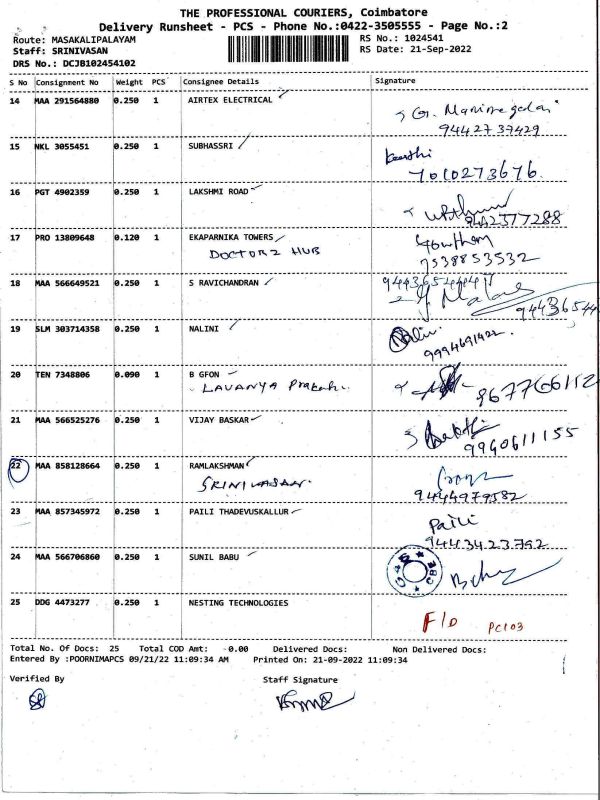 THE PROFESSIONAL COURIERS, Coimbatore
Delivery Runsheet - PCS - Phone No.:0422-3505555 - Page No.:2
Route: MASAKALIPALAYAM RS No.: 1024541
Staff: SRINIVASAN RS Date: 21-Sep-2022
DRS No.: DCJB102454102
S No Consignment No Weight PCS Consignee Details Signature
14 MAA 291564880 0.250 1 AIRTEX ELECTRICAL
G. Manimegalai
9442737429
15 NKL 3055451 0.250 1 SUBHASSRI
Keerthi
7010273676
16 PGT 4902359 0.250 1 LAKSHMI ROAD
9442377288
17 PRO 13809648 0.120 1 EKAPARNIKA TOWERS Gowtham
DOCTORZ HUB 7538853532
18 MAA 566649521 0.250 1 S RAVICHANDRAN
19 SLM 303714358 0.250 1 NALINI Nalini
9994691422
20 TEN 7348806 0.090 1 B GFON
LAVANYA Prakash 9677766112
21 MAA 566525276 0.250 1 VIJAY BASKAR
9940611155
22 MAA 858128664 0.250 1 RAMLAKSHMAN
SRINIVASAN 9444979582
23 MAA 857345972 0.250 1 PAILI THADEVUSKALLUR Paili
9443423792
24 MAA 566706860 0.250 1 SUNIL BABU
25 DDG 4473277 0.250 1 NESTING TECHNOLOGIES
F/D PC103
Total No. Of Docs: 25 Total COD Amt: 0.00 Delivered Docs: Non Delivered Docs:
Entered By :POORNIMAPCS 09/21/22 11:09:34 AM Printed On: 21-09-2022 11:09:34
Verified By Staff Signature